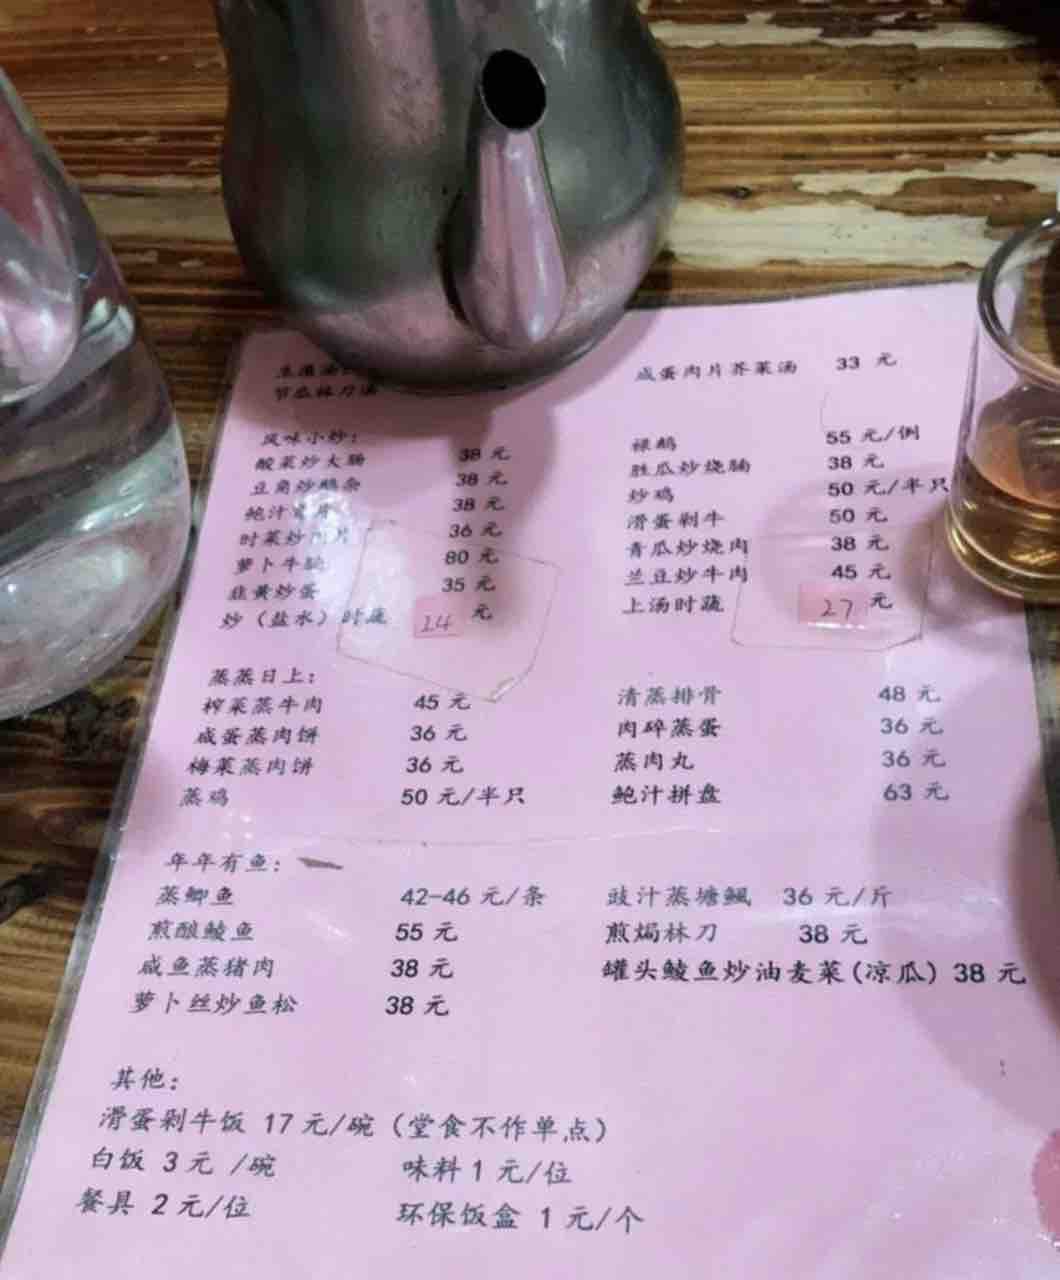 咸蛋肉片芥菜汤 33 元
节瓜林刀汤
风味小炒：
酸菜炒大肠 38 元
豆角炒鹅杂 38 元
鲍汁 38 元
时菜炒肉片 36 元
萝卜牛腩 80 元
韭黄炒蛋 35 元
炒（盐水）时蔬 24 元
禄鹅 55 元/例
胜瓜炒烧腩 38 元
炒鸡 50 元/半只
滑蛋剁牛 50 元
青瓜炒烧肉 38 元
兰豆炒牛肉 45 元
上汤时蔬 27 元
蒸蒸日上：
榨菜蒸牛肉 45 元
咸蛋蒸肉饼 36 元
梅菜蒸肉饼 36 元
蒸鸡 50 元/半只
清蒸排骨 48 元
肉碎蒸蛋 36 元
蒸肉丸 36 元
鲍汁拼盘 63 元
年年有鱼：
蒸鲫鱼 42-46 元/条
煎酿鲮鱼 55 元
咸鱼蒸猪肉 38 元
萝卜丝炒鱼松 38 元
豉汁蒸塘鲺 36 元/斤
煎焗林刀 38 元
罐头鲮鱼炒油麦菜(凉瓜) 38 元
其他：
滑蛋剁牛饭 17 元/碗（堂食不作单点）
白饭 3 元 /碗 味料 1 元/位
餐具 2 元/位 环保饭盒 1 元/个